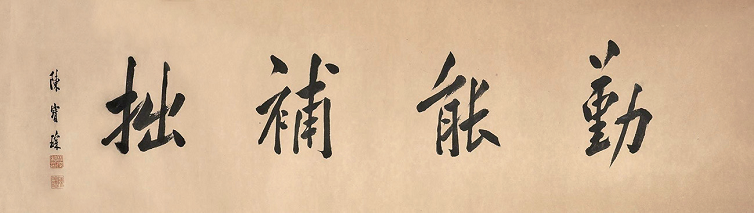 勤能補拙
陳寶琛